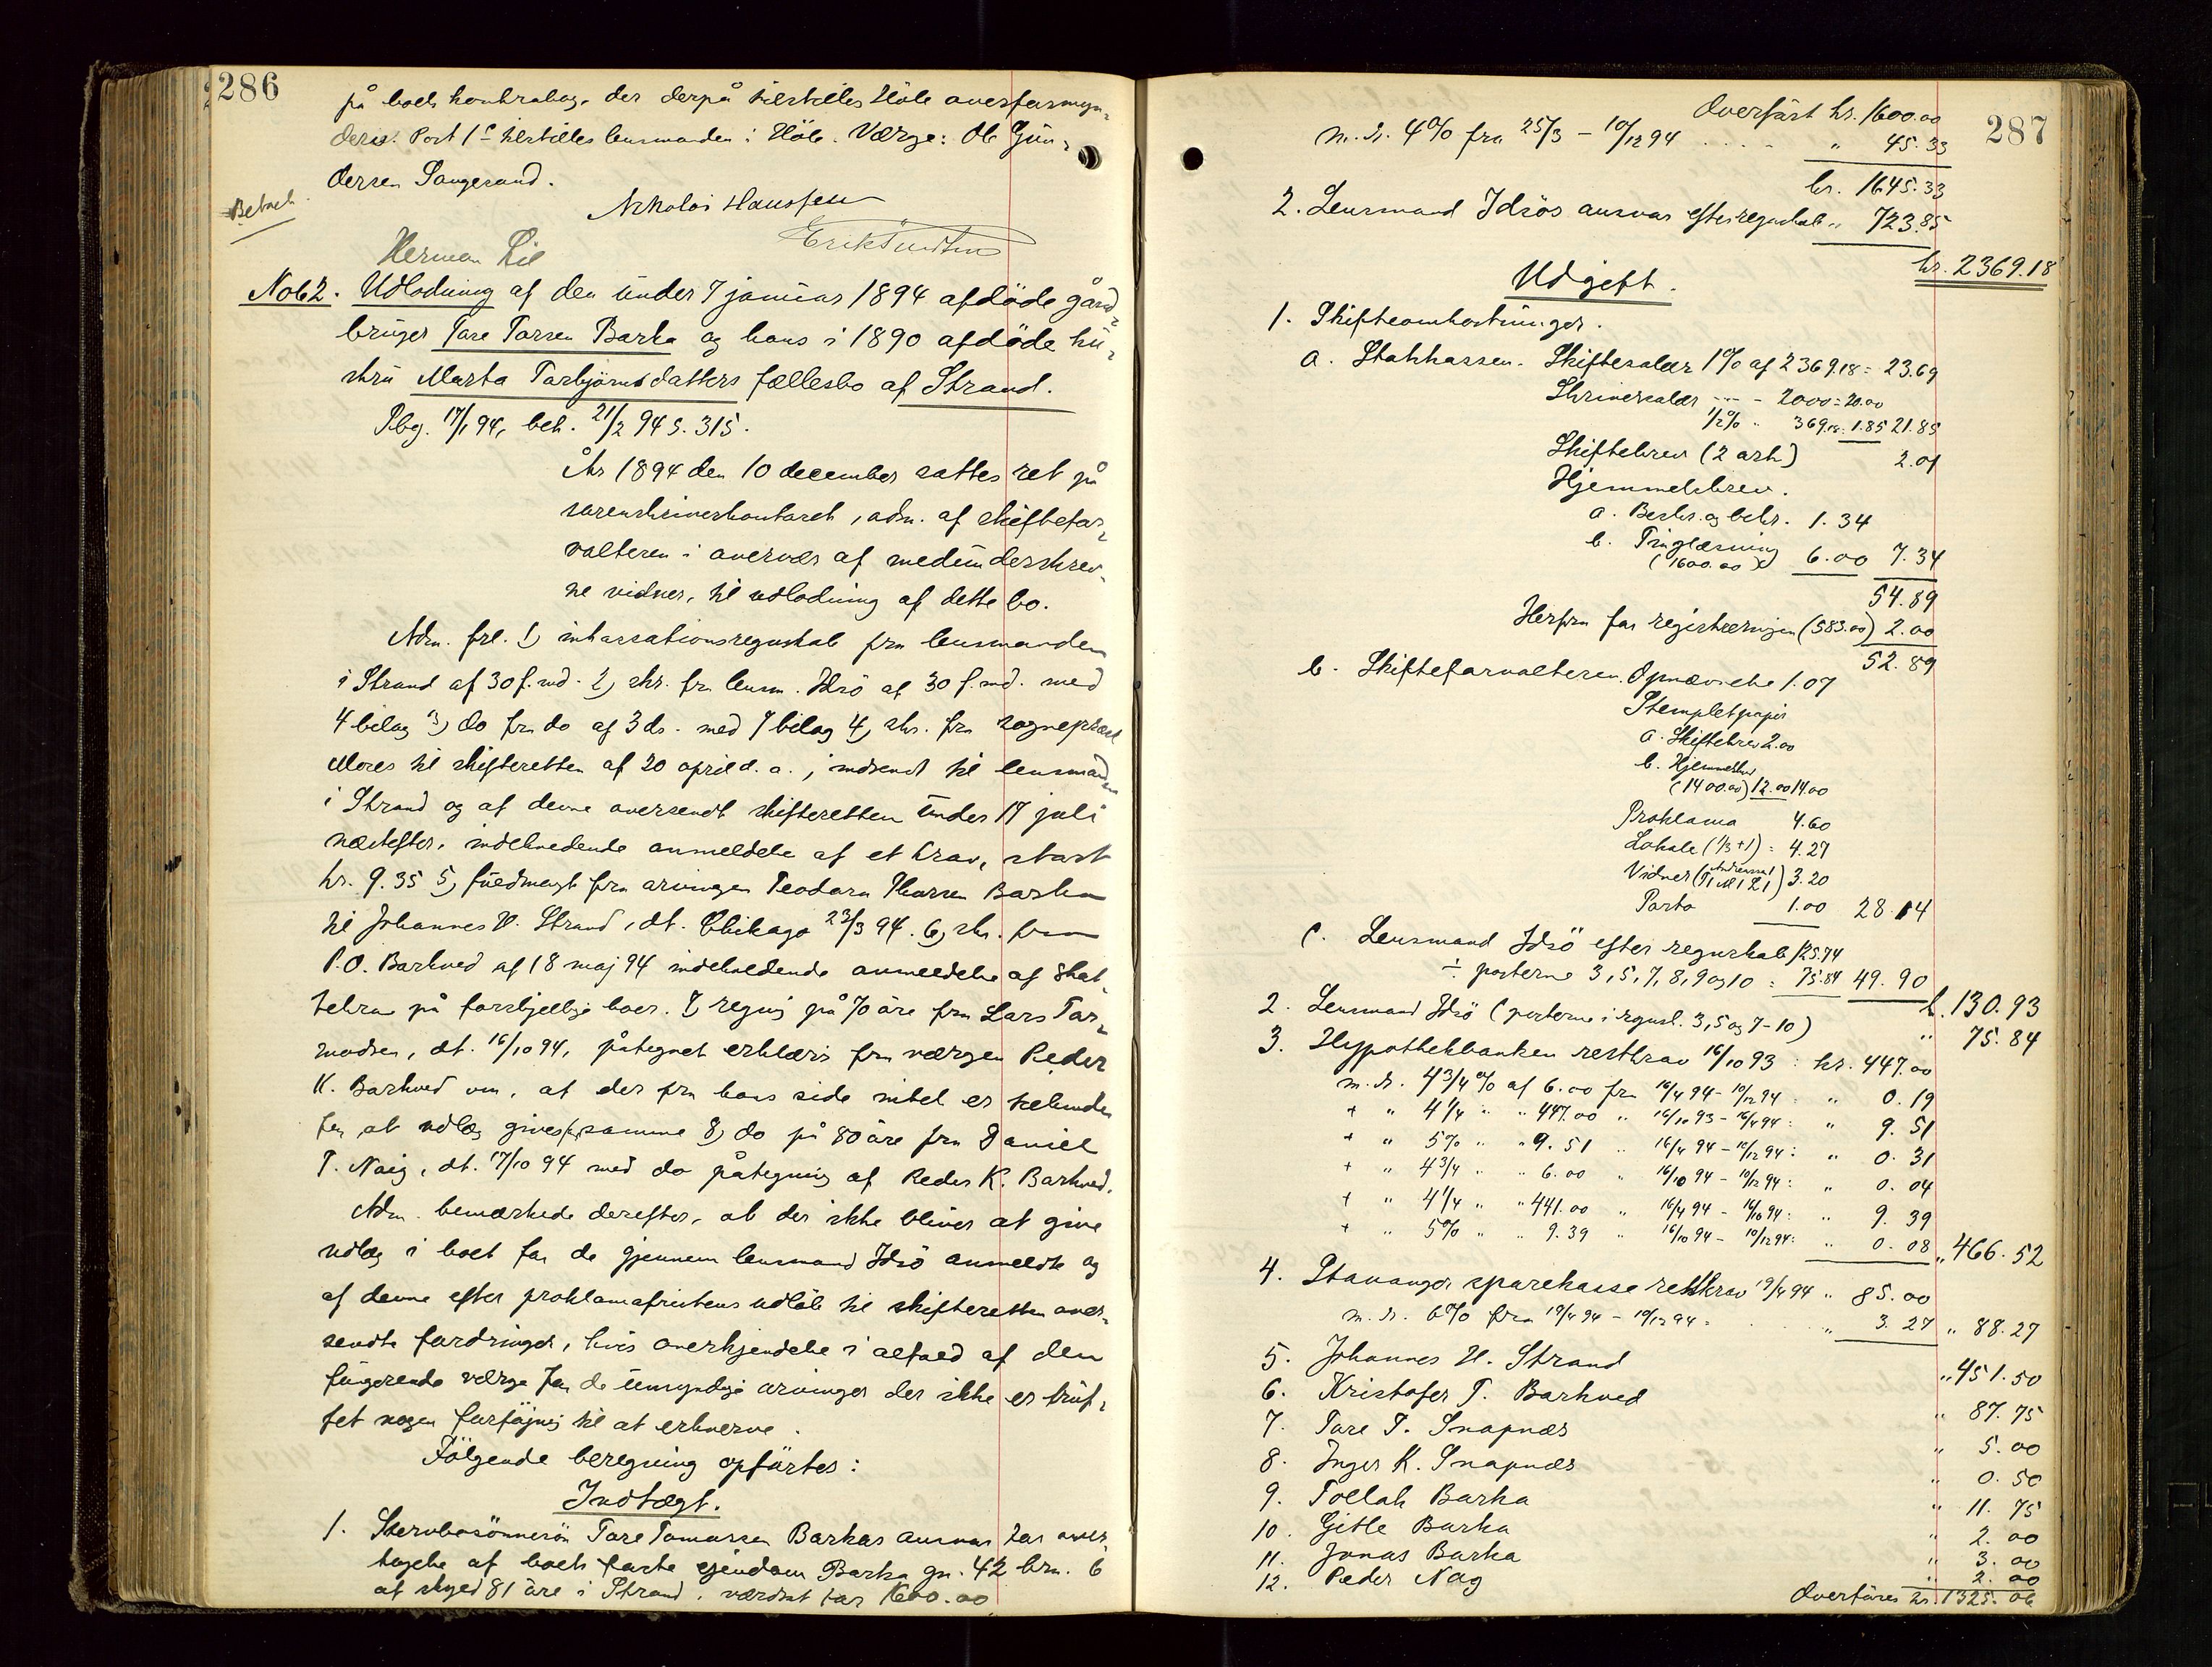 286
på boets kontrabog, der derpå tilstilles Höle overformyn-
deri. Post 1 c tilstilles lensmanden i Höle. Værge: Ole Gun-
dersen Saugesand.
Nikolai Hanssen
Betalt
Herman Lie
No 62. Udlodning af den under 7 januar 1894 afdöde gård-
bruger Tore Torsen Barka og hans i 1890 afdöde hu-
stru Marta Torbjörnsdatters fællesbo af Strand.
Rbg. 17/1 94, beh. 21/2 94 s. 315.
År 1894 den 10 december sattes ret på
sorenskriverkontoret, adm. af skiftefor-
valteren i overvær af medunderskrev-
ne vidner, til udlodning af dette bo.
Adm. frl. 1) inkassationsregnskab fra lensmanden
i Strand af 30 f. md. 2) skr. fra lensm. Idsö af 30 f. md. med
4 bilag 3) do fra do af 3 ds. med 7 bilag 4) skr. fra sogneprest
Moves til skifteretten af 20 april d. a., indsendt til lensmanden
i Strand og af denne oversendt skifteretten under 17 juli
næstefter, indeholdende anmeldelse af et krav, stort
kr. 9.35 5) fuldmagt fra arvingen Teodora Thorsen Barka
til Johannes H. Strand, dt. Chikago 23/3 94. 6) skr. fra
P. O. Barkved af 18 maj 94 indeholdende anmeldelse af skat-
tekrav på forskjellige boer. 7) regnig på 70 öre fra Lars Tor-
modsen, dt. 16/10 94, påtegnet erklæring fra værgen Peder
K. Barkved om, at der fra hans side intet er tilhinder
for, at udlæg gives for samme 8) do på 80 öre fra Daniel
T. Naig, dt. 17/10 94 med do påtegning af Peder K. Barkved.
Adm. bemærkede derefter, at der ikke bliver at give
udlæg i boet for de gjennem lensmand Idsö anmeldte og
af denne efter proklamafristens udlöb til skifteretten over-
sendte fordringer, hvis anerkjendelse i alfald af den
fungerende værge for de umyndige arvinger der ikke er truf-
fet nogen forföjnig til at erhverve.
Fölgende beregning opförtes:
Indtægt.
1. Stervbosönnesön Tore Tomassen Barkas ansvar for over-
tagelse af boets faste ejendom Barka gn. 42 brn. 6
af skyld 81 öre i Strand, værdsat for 1600.00
287
Overfört kr. 1600.00
m. r. 4% fra 25/3 - 10/12 94 . . . . " 45.33
kr. 1645.33
2. Lensmand Idsös ansvar efter regnskab " 723.85
kr. 2369.18
Udgift.
1. Skifteomkostninger.
a. Statskassen. Skiftesalær 1% af 2369.18 = 23.69
Skriversalær - - - 2000 = 20.00
1/2% " 369.18 = 1.85 21.85
Skiftebrev (2 ark) 2.01
Hjemmelsbrev.
a. Beskr. og bekr. 1.34
b. Tinglæsning
(1600.00) 6.00 7.34
54.89
Herfra for registreringen (583.00) 2.00
52.89
b. Skifteforvalteren. Opnævnelse 1.07
Stempletpapir
a. Skiftebrev 2.00
b. Hjemmelsbr
(1400.00) 12.00 14.00
Proklama 4.60
Lokale (1/3 + 1) = 4.27
Vidner 3.20
Porto 1.00 28.14
c. Lensmand Idsö efter regnskab 125.74
÷ posterne 3, 5, 7, 8, 9 og 10 = 75.84 49.90
k. 130.93
2. Lensmand Idsö (posterne i regnsk. 3, 5 og 7-10) " 75.84
3. Hypothekbanken restkrav 16/10 93 : kr. 447.00
m. r. 4 3/4 % af 6.00 fra 16/4 94 - 10/12 94 : " 0.19
+ " 4 1/4 " " 447.00 " 16/10 93 - 16/4 94 : " 9.51
+ " 5% " " 9.51 " 16/4 94 - 10/12 94 : " 0.31
+ " 4 3/4 " " 6.00 " 16/10 94 - 10/12 94 : " 0.04
+ " 4 1/4 " " 441.00 " 16/4 94 - 16/10 94 : " 9.39
+ " 5% " " 9.39 " 16/10 94 - 10/12 94 : " 0.08 " 466.52
4. Stavanger sparekasse restkrav 19/4 94 " 85.00
m. r. 6% fra 19/4 94 - 10/12 94 : " 3.27 " 88.27
5. Johannes H. Strand " 451.50
6. Kristofer T. Barkved " 87.75
7. Tore T. Snapnæs " 5.00
8. Inger K. Snapnæs " 0.50
9. Tollak Barka " 11.75
10. Gitle Barka " 2.00
11. Jonas Barka " 3.00
12. Peder Nag " 2.00
Overföres kr. 1325.06